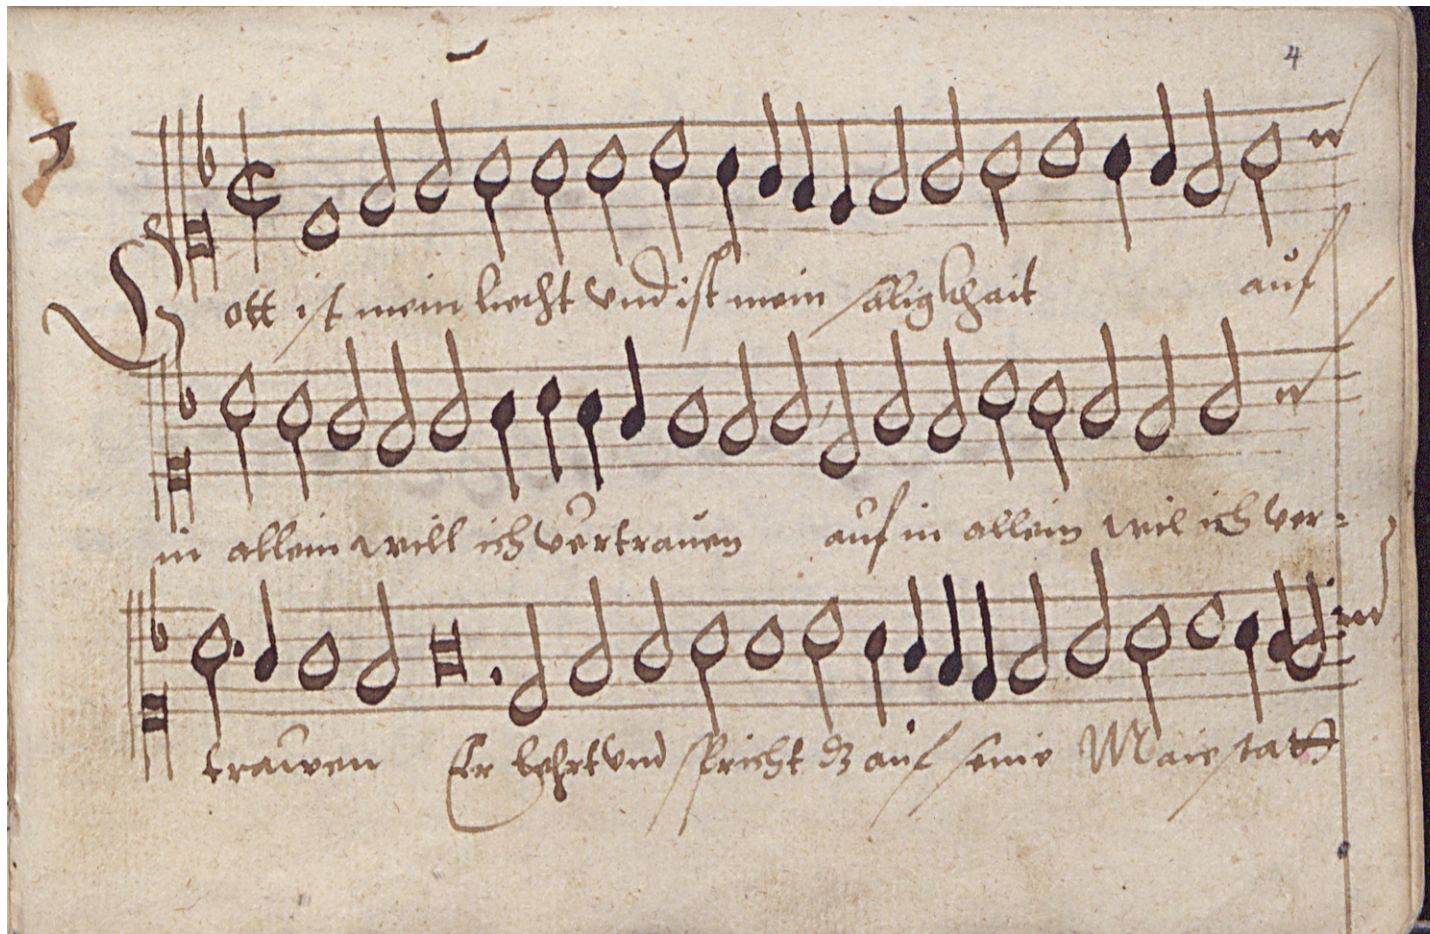 4
Gott ist mein liecht vnd ist mein säligkhait auf
in allein will ich vertrauen auf in allein wil ich ver=
trawen Er lehrt vnd spricht dz auf seine Maiestatt